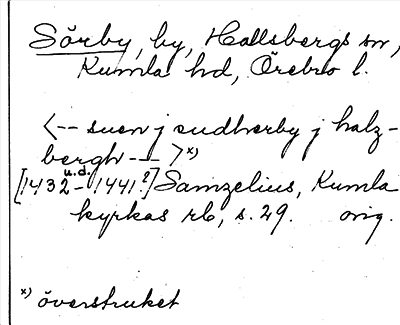 Sörby, by, Hallsbergs sn,
Kumla hd, Örebro l.
<-- suen j sudherby j halz-
bergh --- >x)
[1432 u.d. - 1441?] Samzelius, Kumla
kyrkas rb, s. 29. orig.
x) överstruket